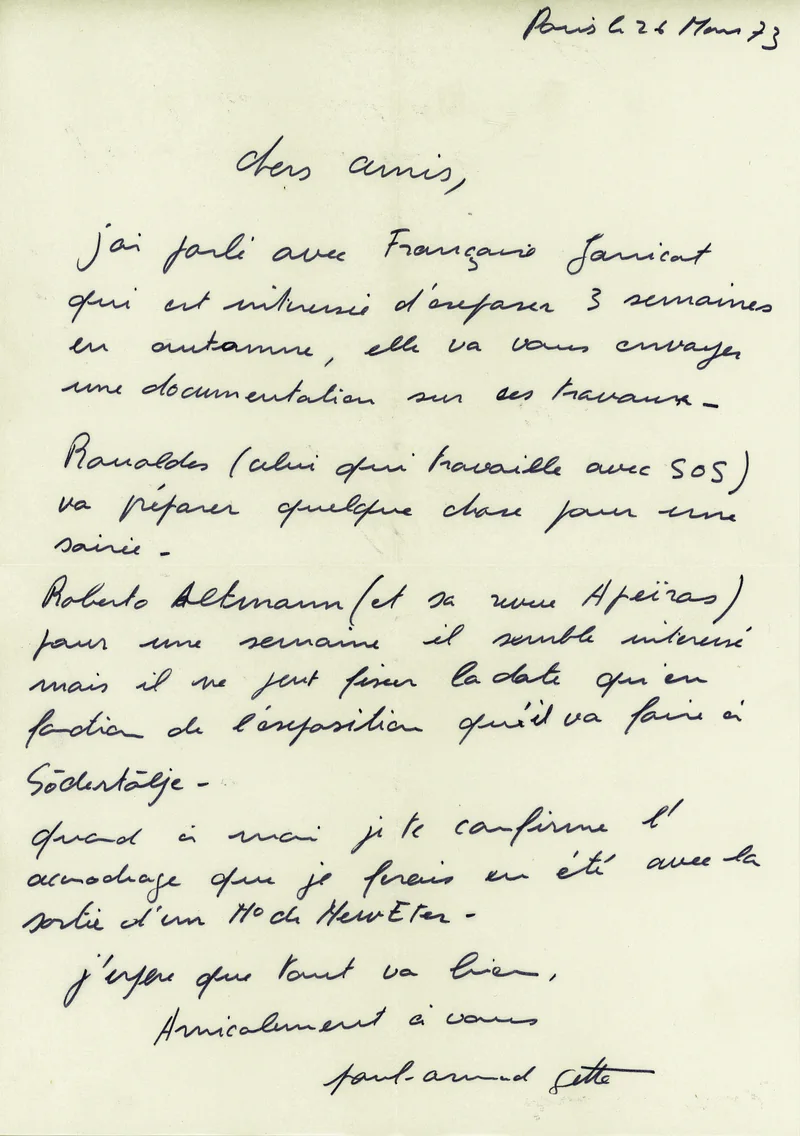 Paris le 26 Mars 73
chers amis,
j'ai parlé avec Françoise Janicot
qui est intéressée d'exposer 3 semaines
en automne, elle va vous envoyer
une documentation sur ses travaux -
(celui qui travaille avec SOS)
va préparer quelque chose pour une
soirée -
Roberto Altmann (et sa revue Apeïros)
pour une semaine il semble intéressé
mais il ne peut fixer la date qu'en
fonction de l'exposition qu'il va faire à
Södertälje -
quand à moi je te confirme l'
accrochage que je ferais en été avec la
sortie d'un No de New Eter -
j'espère que tout va bien,
Amicalement à vous
paul-armand gette